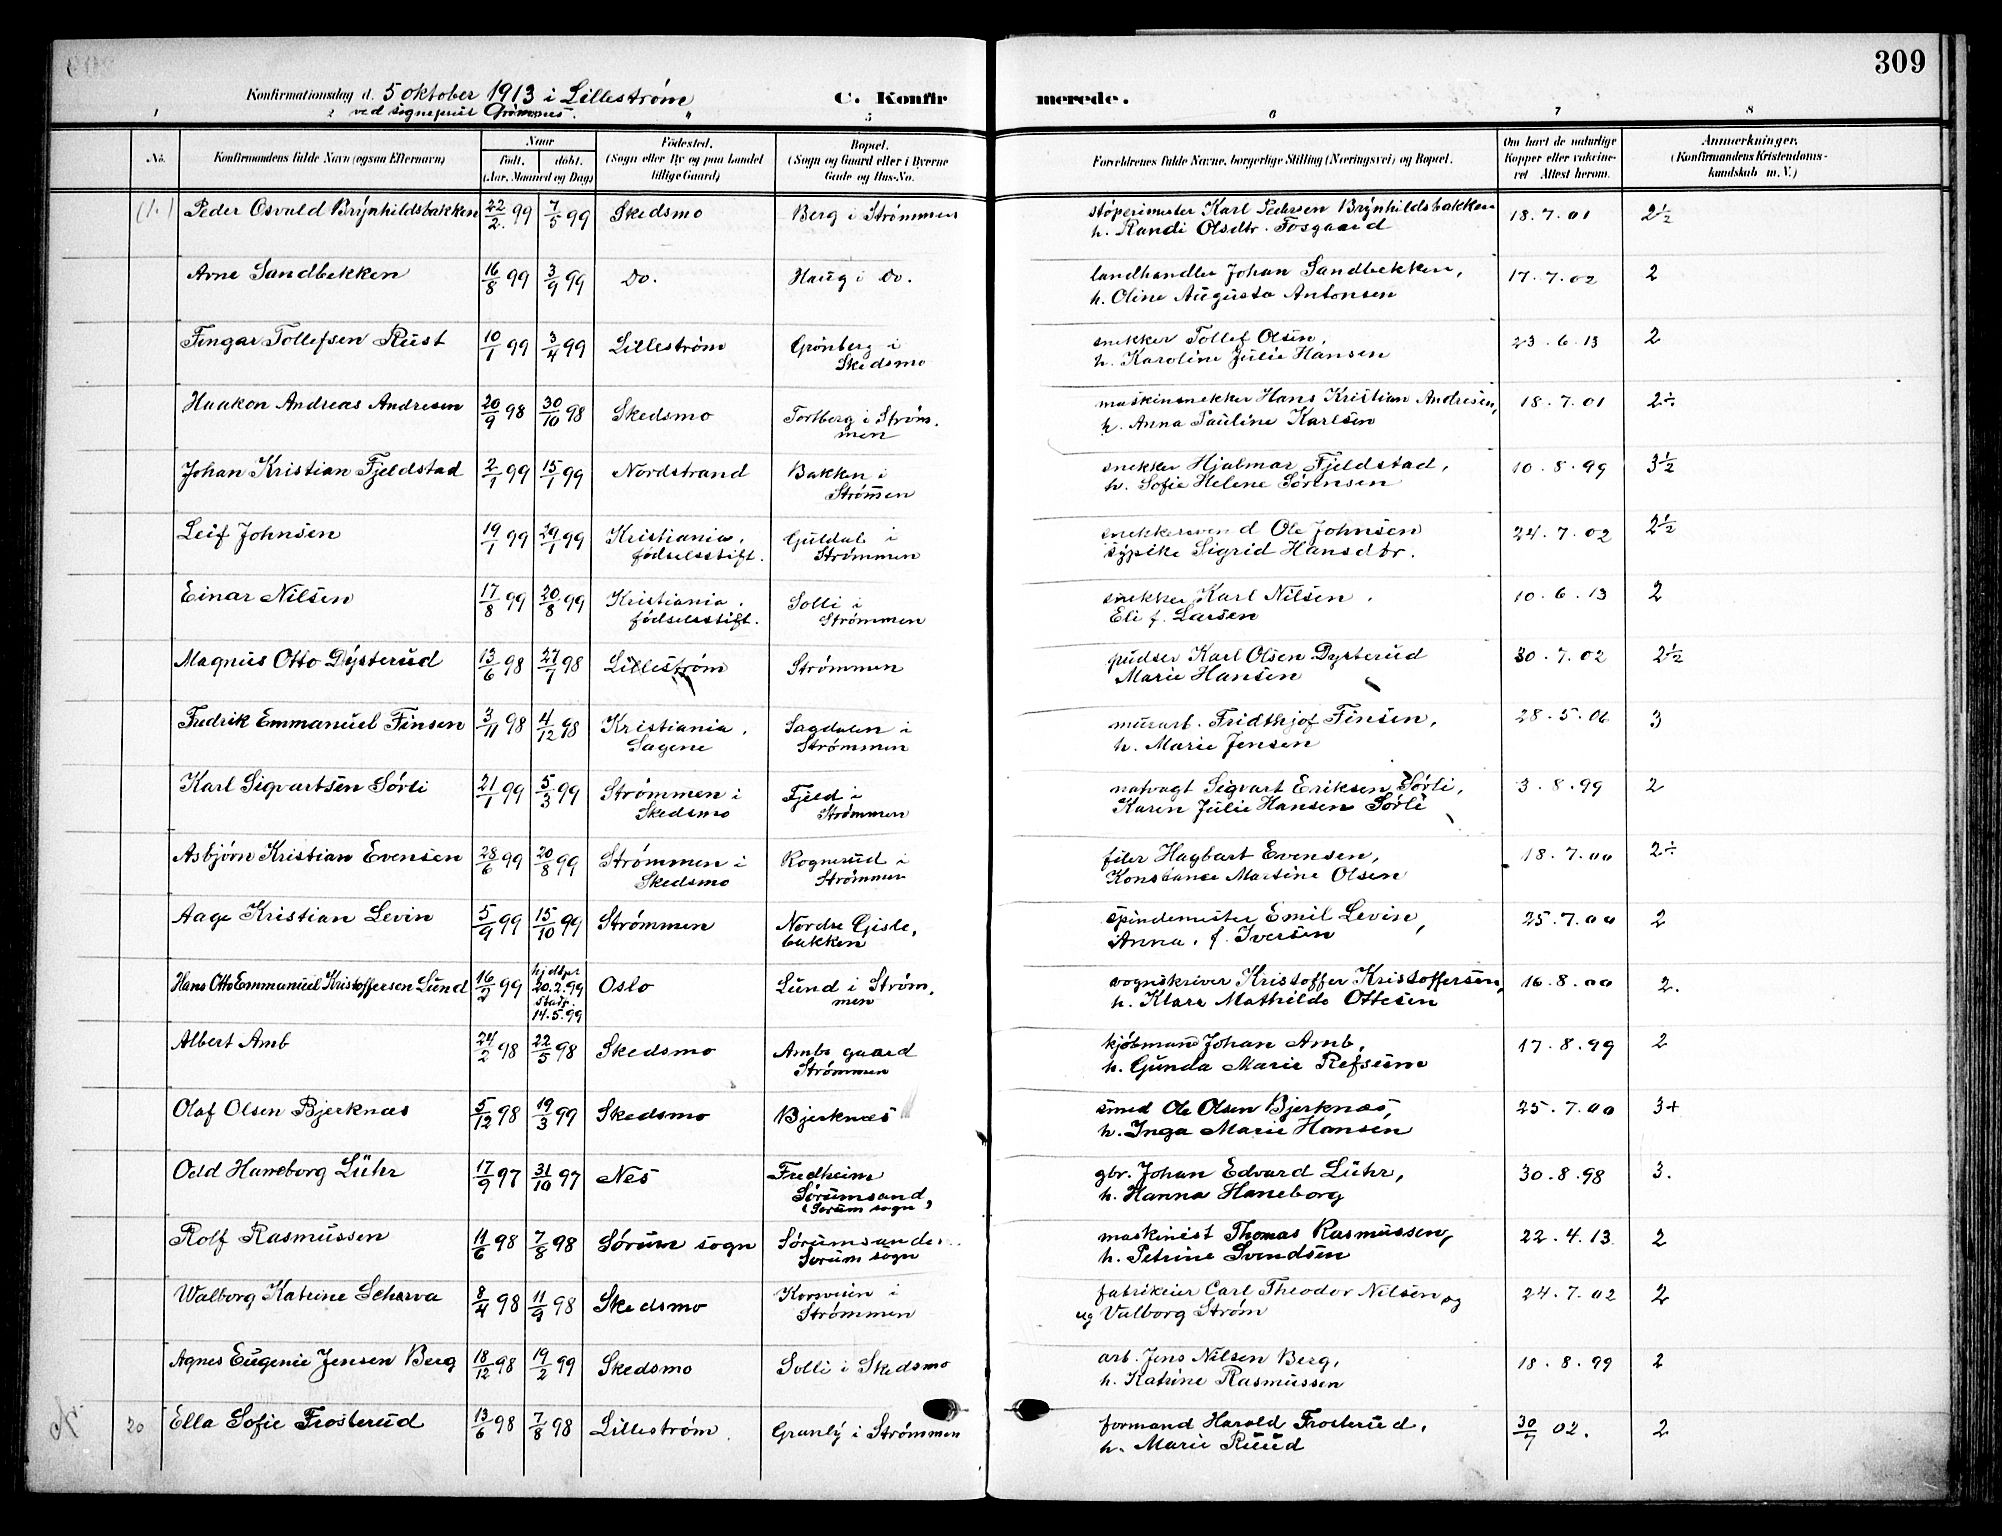 309
Konfirmationsdag d. 5 oktober 1913 i Lillestrøm
ved sogneprest Grømnes.
C. Konfirmerede.
1 2 4 5 6 7 8
No. Konfirmandens fulde Navn (ogsaa Efternavn) Naar født. døbt. (Aar, Maaned og Dag) Fødested. (Sogn eller By og paa Landet tillige Gaard) Bopæl. (Sogn og Gaard eller i Byerne Gade og Hus-No. Forældrenes fulde Navne, borgerlige Stilling (Næringsvei) og Bopæl. Om havt de naturlige Kopper eller vakcineret Attest herom. Anmerkninger. (Konfirmandens Kristendomskundskab m. V.)
(1.) Peder Osvald Brynhildsbakken 22/2 99 7/5 99 Skedsmo Berg i Strømmen støperimester Karl Pedersen Brynhildsbakken 18.7.01 2½
h. Randi Olsdtr. Fosgaard
Arne Sandbekken 16/8 99 3/9 99 Do. Haug i Do. landhandler Johan Sandbekken, 17.7.02 2
h. Oline Augusta Antonsen
Fingar Tollefsen Rust 10/1 99 3/4 99 Lillestrøm Grønberg i snekker Tollef Olsen, 23.6.13 2
Skedsmo h. Karoline Julie Hansen
Haakon Andreas Andresen 20/9 98 30/10 98 Skedsmo Torlberg i Strøm- maskinsnekker Hans Kristian Andresen, 18.7.01 2÷
men h. Anna Pauline Karlsen
Johan Kristian Fjeldstad 2/1 99 15/1 99 Nordstrand Bakken i snekker Hjalmar Fjeldstad, 10.8.99 3½
Strømmen h. Sofie Helene Sørensen
Leif Johnsen 19/1 99 29/1 99 Kristiania, Guldal i snekkersven d Ole Johnsen 24.7.02 2½
fødselsstift. Strømmen sypike Sigrid Hansdtr.
Einar Nilsen 17/8 99 20/8 99 Kristiania, Solli i snekker Karl Nilsen. 10.6.13 2
fødselsstift. Strømmen Eli f. Larsen
Magnus Otto Dysterud 13/6 98 27/7 98 Lillestrøm Strømmen pudser Karl Olsen Dysterud 30.7.02 2½
Marie Hansen
Fredrik Emmanuel Finsen 3/11 98 4/12 98 Kristiania, Sagdalen i murarb. Fridthjof Finsen, 28.5.06 3
Sagene Strømmen h. Marie Jensen
Karl Sigvartsen Sørli 21/1 99 5/3 99 Strømmen i Fjeld i natvagt Sigvart Eriksen Sørli, 3.8.99 2
Skedsmo Strømmen Karen Julie Hansen Sørli
Asbjørn Kristian Evensen 28/6 99 20/8 99 Strømmen i Rognerud i filer Hagbart Evensen, 18.7.00 2÷
Skedsmo Strømmen Konstance Martine Olsen
Aage Kristian Levin 5/9 99 15/10 99 Strømmen Nordre Gisle- spindemester Emil Levin, 25.7.00 2
bakken Anna, f. Iversen
Hans Otto Emmanuel Kristoffersen Lund 16/2 99 hjdøpt 20.2.99 stadf. 14.5.99 Oslo Lund i Strøm- vognskriver Kristoffer Kristoffersen, 16.8.00 2.
men h. Klara Mathilde Ottesen
Albert Amb 24/2 98 22/5 98 Skedsmo Ambs gaard kjøbmand Johan Amb, 17.8.99 2
Strømmen h. Gunda Marie Refsum
Olaf Olsen Bjerknæs 5/12 98 19/3 99 Skedsmo Bjerknæs smed Ole Olsen Bjerknæs, 25.7.00 3+
h. Inga Marie Hansen
Odd Haneborg Lühr 17/9 97 31/10 97 Nes Fredheim gbr. Johan Edvard Lühr, 30.8.98 3.
Sørumsand, h. Hanna Haneborg
(Sørum sogn)
Rolf Rasmussen 11/6 98 7/8 98 Sørum sogn Sørumsanden maskinist Thomas Rasmussen, 22.4.13 2
Sørum sogn h. Petrine Svendsen
Walborg Katrine Scharva 8/4 98 11/9 98 Skedsmo Korsveien i fabrikeier Carl Theodor Nilsen og 24.7.02 2
Strømmen og Valborg Strøm
Agnes Eugenie Jensen Berg 18/12 98 19/2 99 Skedsmo Solli i Skedsmo arb. Jens Nilsen Berg, 18.8.99 2
h. Katrine Rasmussen
20 Ella Sofie Frosterud 13/6 98 7/8 98 Lillestrøm. Granly i Strømmen formand Harald Frosterud, 30/7 02. 2
h. Marie Ruud